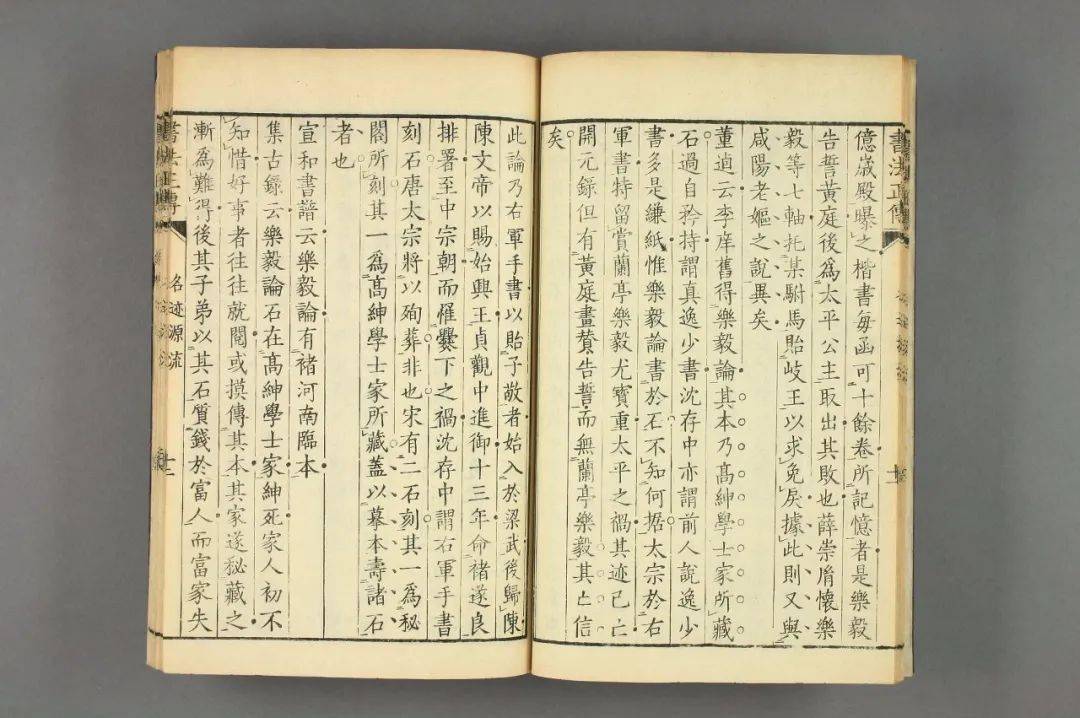 書法正傳
億歲殿曝之楷書每函可十餘卷所記憶者是樂毅
告誓黃庭後為太平公主取出其敗也薛崇胤懷樂
毅等七軸托某駙馬貽岐王以求免戾據此則又與
咸陽老嫗之說異矣
董逌云李庠舊得樂毅論其本乃高紳學士家所藏
石過自矜持謂真逸少書沈存中亦謂前人說逸少
書多是縑紙惟樂毅論書於石不知何据太宗於右
軍書特留賞蘭亭樂毅尤寶重太平之禍其迹已亡
開元錄但有黃庭畫贊告誓而無蘭亭樂毅其亡信
矣
此論乃右軍手書以貽子敬者始入於梁武後歸陳
陳文帝以賜始興王貞觀中進御十三年命褚遂良
排署至中宗朝而罹爨下之禍沈存中謂右軍手書
刻石唐太宗將以殉葬非也宋有二石刻其一為秘
閣所刻其一為高紳學士家所藏蓋以摹本壽諸石
者也
宣和書譜云樂毅論有褚河南臨本
集古錄云樂毅論石在高紳學士家紳死家人初不
知惜好事者往往就閱或摸傳其本其家遂秘藏之
漸為難得後其子弟以其石質錢於富人而富家失
書法正傳
名迹源流
十二